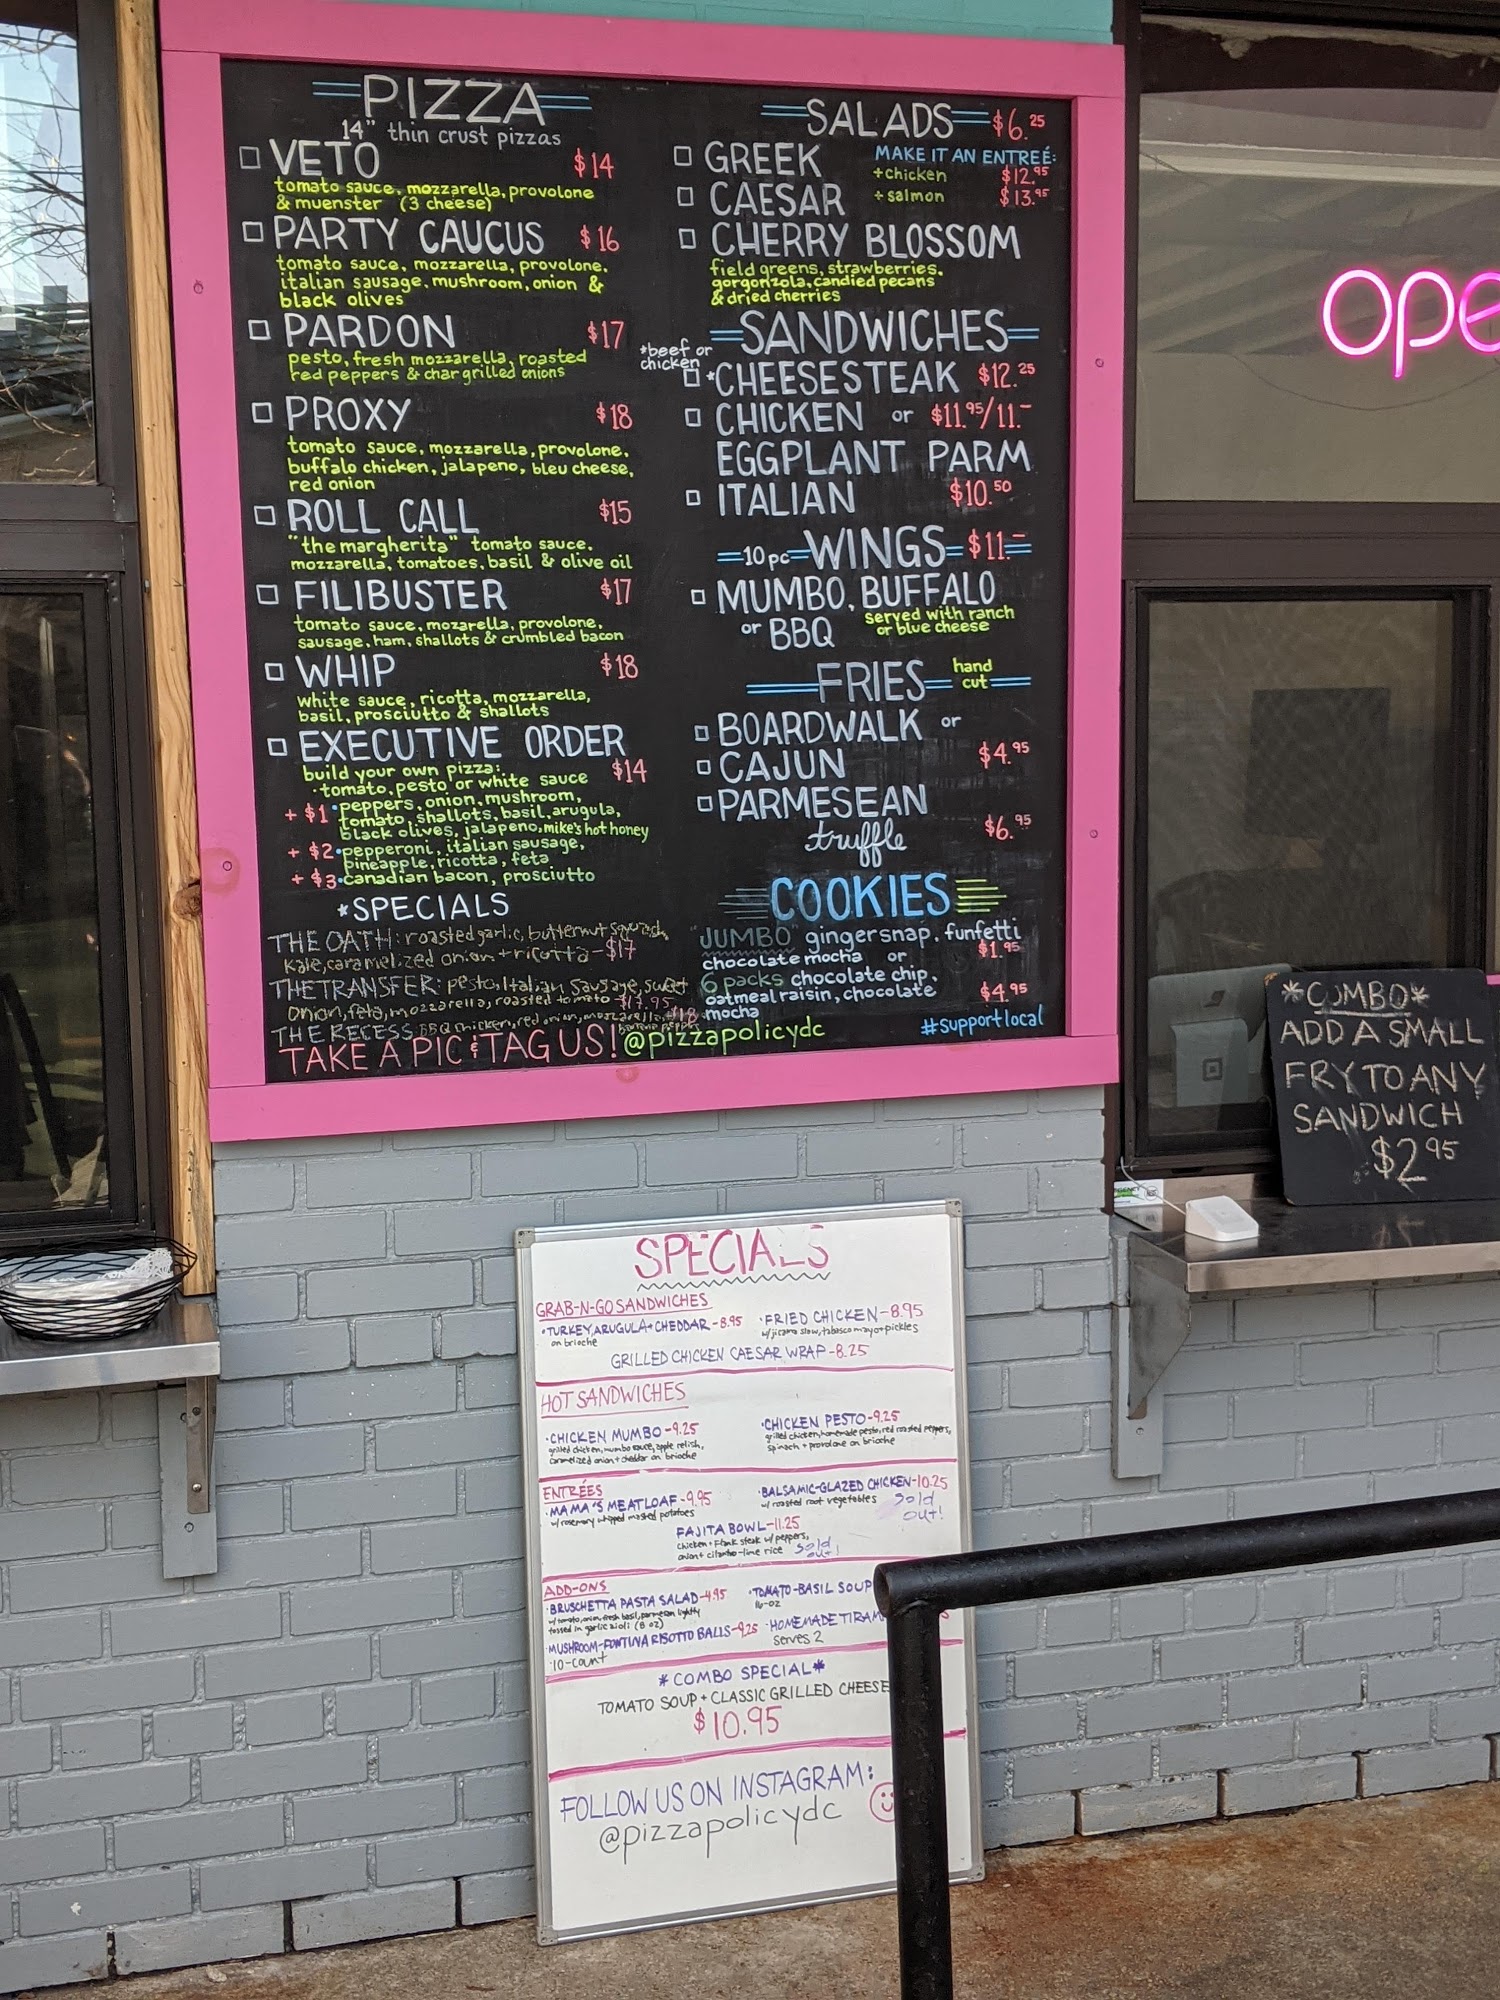 PIZZA
14" thin crust pizzas
VETO $14
tomato sauce, mozzarella, provolone
& muenster (3 cheese)
PARTY CAUCUS $16
tomato sauce, mozzarella, provolone,
italian sausage, mushroom, onion &
black olives
PARDON $17
pesto, fresh mozzarella, roasted
red peppers & char grilled onions
PROXY $18
tomato sauce, mozzarella, provolone,
buffalo chicken, jalapeno, bleu cheese,
red onion
ROLL CALL $15
"the margherita" tomato sauce,
mozzarella, tomatoes, basil & olive oil
FILIBUSTER $17
tomato sauce, mozarella, provolone,
sausage, ham, shallots & crumbled bacon
WHIP $18
white sauce, ricotta, mozzarella,
basil, prosciutto & shallots
EXECUTIVE ORDER
build your own pizza: $14
·tomato, pesto or white sauce
+ $1 •peppers, onion, mushroom,
tomato, shallots, basil, arugula,
black olives, jalapeno, mike's hot honey
+ $2•pepperoni, italian sausage,
pineapple, ricotta, feta
+ $3•canadian bacon, prosciutto
*SPECIALS
THE OATH: roasted garlic, butternut squash,
kale, caramelized onion + ricotta - $17
THE TRANSFER: pesto, Italian sausage, sweet
onion, feta, mozzarella, roasted tomato $17.95
THE RECESS: BBQ chicken, red onion, mozzarella, $18
banana peppers
TAKE A PIC & TAG US! @pizzapolicydc
SALADS $6.25
GREEK
MAKE IT AN ENTREÉ:
+chicken $12.95
CAESAR
+salmon $13.95
CHERRY BLOSSOM
field greens, strawberries,
gorgonzola, candied pecans
& dried cherries
SANDWICHES
*beef or
chicken
*CHEESESTEAK $12.25
CHICKEN or $11.95/11.-
EGGPLANT PARM
ITALIAN $10.50
10 pc WINGS $11.-
MUMBO, BUFFALO
or BBQ
served with ranch
or blue cheese
FRIES hand
cut
BOARDWALK or
CAJUN $4.95
PARMESEAN
truffle $6.95
COOKIES
"JUMBO" gingersnap, funfetti
chocolate mocha or $1.95
6 packs chocolate chip,
oatmeal raisin, chocolate $4.95
mocha
#supportlocal
ope
*COMBO*
ADD A SMALL
FRY TO ANY
SANDWICH
$2.95
SPECIALS
GRAB-N-GO SANDWICHES
·TURKEY, ARUGULA + CHEDDAR - 8.95
on brioche
·FRIED CHICKEN - 8.95
w/ jicama slaw, tabasco mayo + pickles
GRILLED CHICKEN CAESAR WRAP - 8.25
HOT SANDWICHES
·CHICKEN MUMBO - 9.25
grilled chicken, mumbo sauce, apple relish,
caramelized onion + cheddar on brioche
·CHICKEN PESTO - 9.25
grilled chicken, homemade pesto, red roasted peppers,
spinach + provolone on brioche
ENTRÉES
·MAMA'S MEATLOAF - 9.95
w/ rosemary whipped mashed potatoes
·BALSAMIC-GLAZED CHICKEN - 10.25
w/ roasted root vegetables
Sold
out!
FAJITA BOWL - 11.25
chicken + flank steak w/ peppers,
onion + cilantro-lime rice
Sold
out!
ADD-ONS
·BRUSCHETTA PASTA SALAD - 4.95
w/ tomato, onion, fresh basil, parmesan lightly
tossed in garlic aioli (8 oz)
·TOMATO-BASIL SOUP
16-oz
·MUSHROOM-FONTINA RISOTTO BALLS - 9.25
10-count
·HOMEMADE TIRAM
Serves 2
*COMBO SPECIAL*
TOMATO SOUP + CLASSIC GRILLED CHEESE
$10.95
FOLLOW US ON INSTAGRAM:
@pizzapolicydc